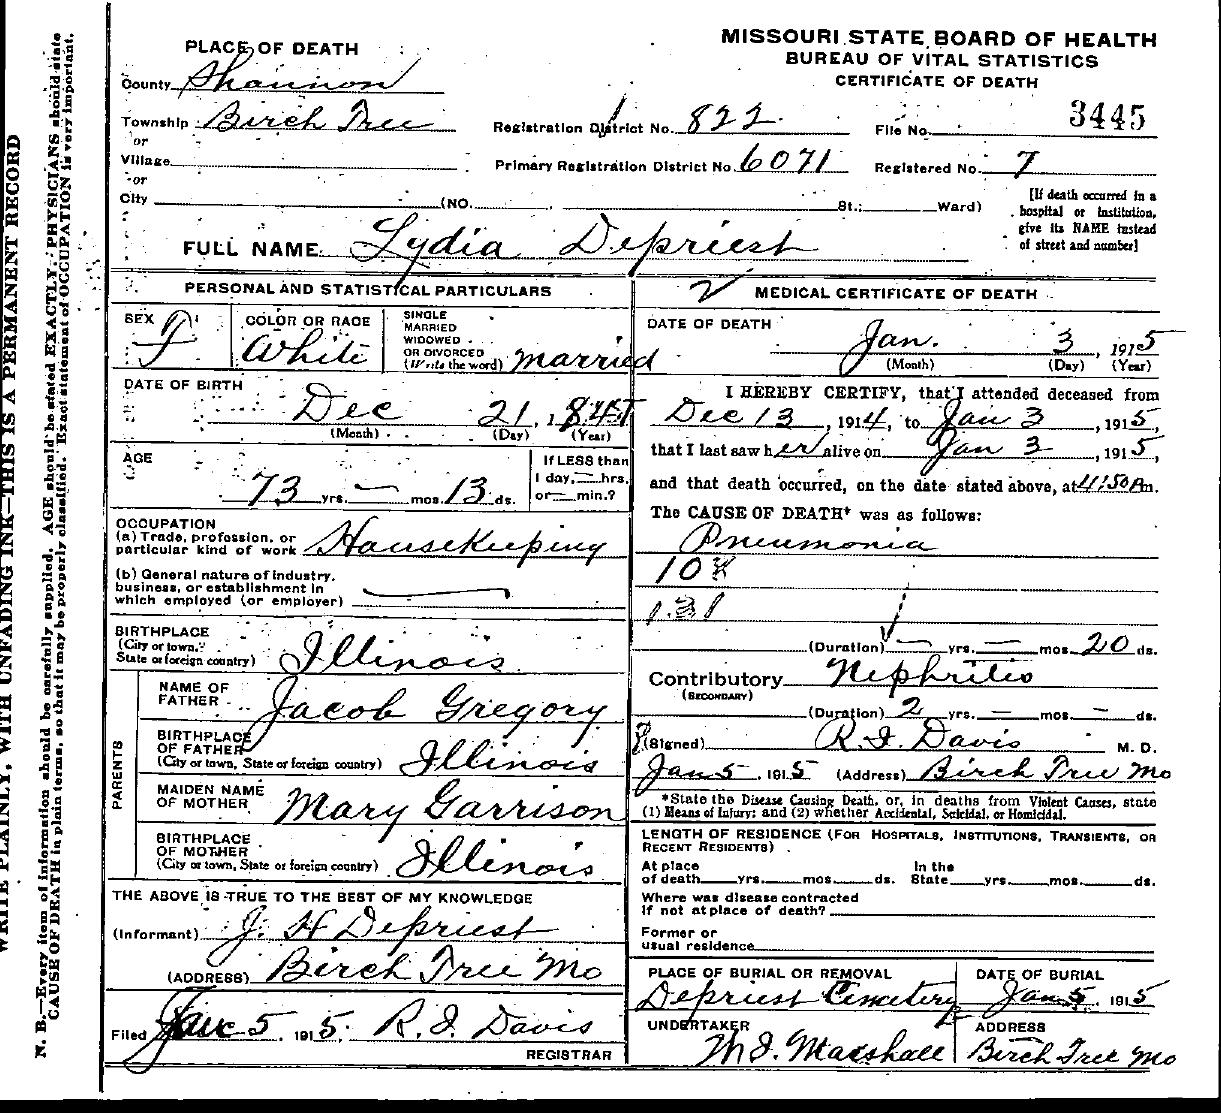 WRITE PLAINLY, WITH UNFADING INK—THIS IS A PERMANENT RECORD
N. B.—Every item of information should be carefully supplied. AGE should be stated EXACTLY. PHYSICIANS should state
CAUSE OF DEATH in plain terms, so that it may be properly classified. Exact statement of OCCUPATION is very important.
MISSOURI STATE BOARD OF HEALTH
BUREAU OF VITAL STATISTICS
CERTIFICATE OF DEATH
PLACE OF DEATH
County Shannon
Township Birch Tree
or
Village
or
City (NO. St.; Ward)
Registration District No. 822
Primary Registration District No. 6071
File No. 3445
Registered No. 7
[If death occurred in a
hospital or institution,
give its NAME instead
of street and number]
FULL NAME Lydia Depriest
PERSONAL AND STATISTICAL PARTICULARS
SEX F
COLOR OR RACE White
SINGLE
MARRIED
WIDOWED
OR DIVORCED
(Write the word) married
DATE OF BIRTH
Dec 21, 1
(Month) (Day) (Year)
AGE
73 yrs. — mos. 13 ds.
If LESS than
1 day, — hrs.
or — min.?
OCCUPATION
(a) Trade, profession, or
particular kind of work Housekeeping
(b) General nature of industry,
business, or establishment in
which employed (or employer) —
BIRTHPLACE
(City or town,
State or foreign country) Illinois
PARENTS
NAME OF
FATHER Jacob Gregory
BIRTHPLACE
OF FATHER
(City or town, State or foreign country) Illinois
MAIDEN NAME
OF MOTHER Mary Garrison
BIRTHPLACE
OF MOTHER
(City or town, State or foreign country) Illinois
THE ABOVE IS TRUE TO THE BEST OF MY KNOWLEDGE
(Informant) J. H Depriest
(ADDRESS) Birch Tree Mo
Filed 5, 1915. R. I. Davis
REGISTRAR
2 MEDICAL CERTIFICATE OF DEATH
DATE OF DEATH
Jan. 3, 1915
(Month) (Day) (Year)
I HEREBY CERTIFY, that I attended deceased from
Dec 13, 1914, to Jan 3, 1915,
that I last saw her alive on Jan 3, 1915,
and that death occurred, on the date stated above, at 4:50 Pm.
The CAUSE OF DEATH* was as follows:
Pneumonia
10
131
(Duration) — yrs. — mos. 20 ds.
Contributory Nephritis
(SECONDARY)
(Duration) 2 yrs. — mos. — ds.
(Signed) R. I. Davis M. D.
Jan 5, 1915 (Address) Birch Tree Mo
*State the Disease Causing Death, or, in deaths from Violent Causes, state
(1) Means of Injury; and (2) whether Accidental, Suicidal, or Homicidal.
LENGTH OF RESIDENCE (FOR HOSPITALS, INSTITUTIONS, TRANSIENTS, OR
RECENT RESIDENTS)
At place In the
of death yrs. mos. ds. State yrs. mos. ds.
Where was disease contracted
if not at place of death?
Former or
usual residence
PLACE OF BURIAL OR REMOVAL
Depriest Cemetery
DATE OF BURIAL
Jan 5, 1915
UNDERTAKER
M. I. Marshall
ADDRESS
Birch Tree Mo